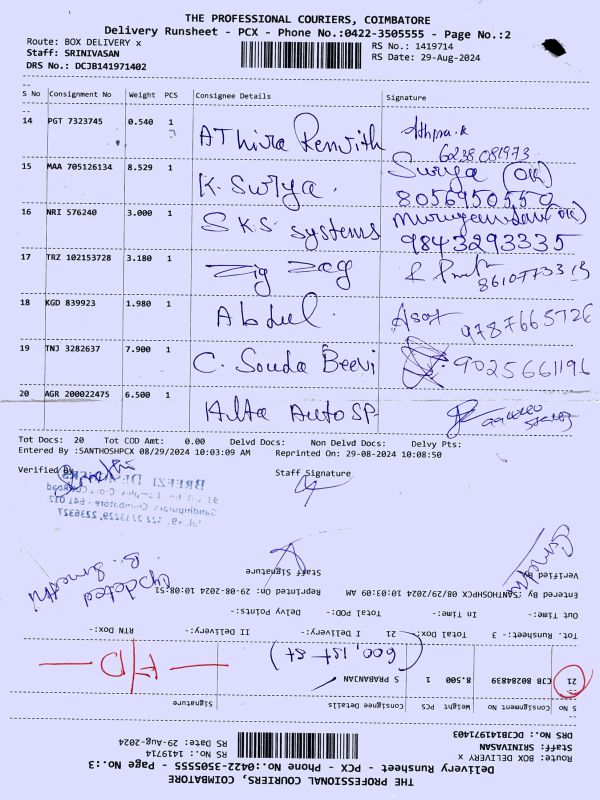 THE PROFESSIONAL COURIERS, COIMBATORE
Delivery Runsheet - PCX - Phone No.:0422-3505555 - Page No.:2
Route: BOX DELIVERY x
Staff: SRINIVASAN
DRS No.: DCJB141971402
RS No.: 1419714
RS Date: 29-Aug-2024
S No Consignment No Weight PCS Consignee Details Signature
14 PGT 7323745 0.540 1 AThira Renrith Athira.R
6238081973
15 MAA 705126134 8.529 1 K. Surya. Surya (OK)
8056950559
16 NRI 576240 3.000 1 SKS Systems (OK)
9843293335
17 TRZ 102153728 3.180 1 Zig Zag
18 KGD 839923 1.980 1 Abdul. 9787665726
19 TNJ 3282637 7.900 1 C. Souda Beevi 9025661196
20 AGR 200022475 6.500 1 Auto SP.
Tot Docs: 20 Tot COD Amt: 0.00 Delvd Docs: Non Delvd Docs: Delvy Pts:
Entered By :SANTHOSHPCX 08/29/2024 10:03:09 AM Reprinted On: 29-08-2024 10:08:50
Verified By Staff Signature
THE PROFESSIONAL COURIERS, COIMBATORE
Delivery Runsheet - PCX - Phone No.:0422-3505555 - Page No.:3
Route: BOX DELIVERY x
Staff: SRINIVASAN
DRS No.: DCJB141971403
RS No.: 1419714
RS Date: 29-Aug-2024
S No Consignment No Weight PCS Consignee Details Signature
21 CJB 80284839 8.500 1 S PRABANJAN
(600, 1st st)
FD
Tot. Runsheet - 3 Total Dox: 21 I Delivery:- II Delivery:- RTN Dox:-
Out Time :- In Time :- Total POD:- Delvy Points:-
Entered By :SANTHOSHPCX 08/29/2024 10:03:39 AM Reprinted On: 29-08-2024 10:08:51
Verified By Staff Signature
Updated